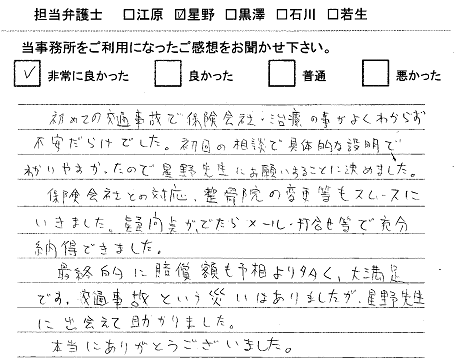 担当弁護士 □江原 ☑星野 □黒澤 □石川 □若生
当事務所をご利用になったご感想をお聞かせ下さい。
☑ 非常に良かった □ 良かった □ 普通 □ 悪かった
初めての交通事故で保険会社・治療の事がよくわからず
不安だらけでした。初回の相談で具体的な説明で
わかりやすかったので星野先生にお願いすることに決めました。
保険会社との対応、整骨院の変更等もスムーズに
いきました。疑問点がでたらメール・打合せ等で充分
納得できました。
最終的に賠償額も予想より多く、大満足
です。交通事故という災いはありましたが、星野先生
に出会えて助かりました。
本当にありがとうございました。